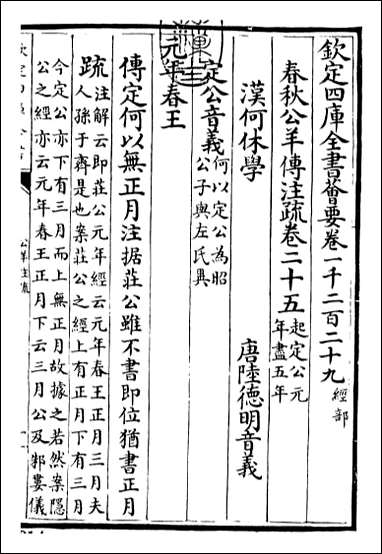 欽定四庫全書薈要卷一千二百二十九 經部
春秋公羊傳注疏卷二十五 起定公元年盡五年
漢何休學 唐陸德明音義
定公音義何以定公為昭公子與左氏異
元年春王
傳定何以無正月注据莊公雖不書即位猶書正月
疏注解云即莊公元年經云元年春王正月三月夫
人孫于齊是也案莊公之經上有正月下有三月
今定公亦下有三月而上無正月故據之若然案隱
公之經亦云元年春王正月下云三月公及邾婁儀
公羊注疏